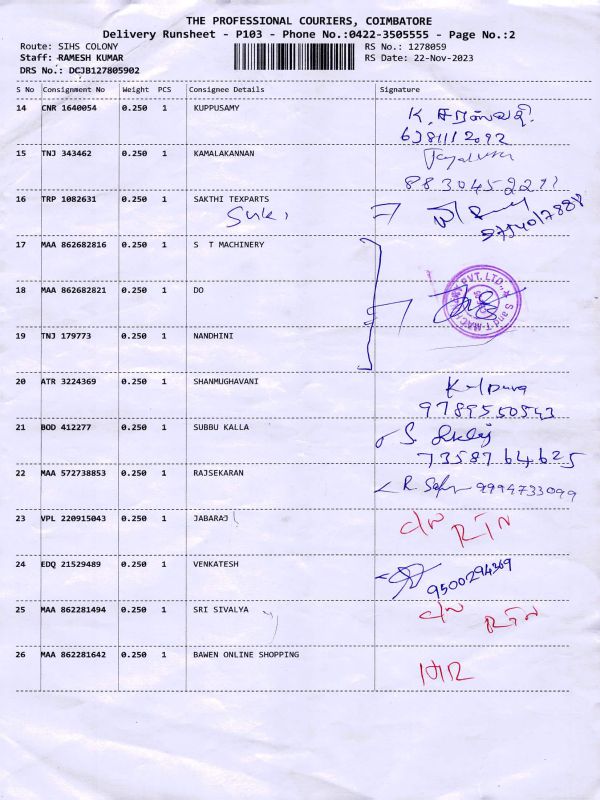 THE PROFESSIONAL COURIERS, COIMBATORE
Delivery Runsheet - P103 - Phone No.:0422-3505555 - Page No.:2
Route: SIHS COLONY RS No.: 1278059
Staff: RAMESH KUMAR RS Date: 22-Nov-2023
DRS No.: DCJB127805902
S No Consignment No Weight PCS Consignee Details Signature
14 CNR 1640054 0.250 1 KUPPUSAMY
15 TNJ 343462 0.250 1 KAMALAKANNAN
16 TRP 1082631 0.250 1 SAKTHI TEXPARTS
Suki
17 MAA 862682816 0.250 1 S T MACHINERY
18 MAA 862682821 0.250 1 DO
PVT. LTD., ★ S and T MAC
19 TNJ 179773 0.250 1 NANDHINI
20 ATR 3224369 0.250 1 SHANMUGHAVANI Kalpana
9789550543
21 BOD 412277 0.250 1 SUBBU KALLA S
7358764625
22 MAA 572738853 0.250 1 RAJSEKARAN R. 9994733099
23 VPL 220915043 0.250 1 JABARAJ C/N RTN
24 EDQ 21529489 0.250 1 VENKATESH 9500294369
25 MAA 862281494 0.250 1 SRI SIVALYA C/N RTN
26 MAA 862281642 0.250 1 BAWEN ONLINE SHOPPING